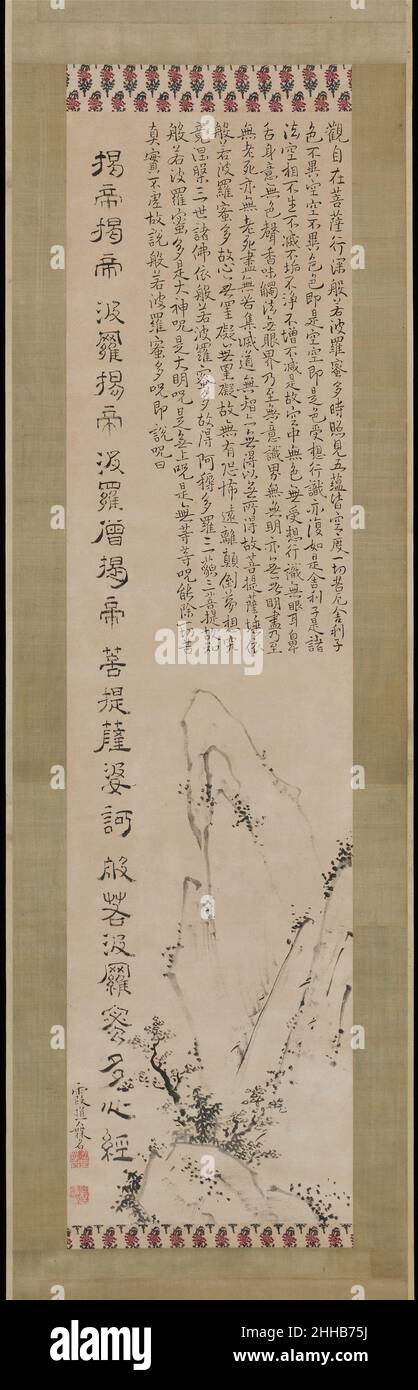 觀自在菩薩行深般若波羅蜜多時照見五蘊皆空度一切苦厄舍利子
色不異空空不異色色即是空空即是色受想行識亦復如是舍利子是諸
法空相不生不滅不垢不淨不增不減是故空中無色無受想行識無眼耳鼻
舌身意無色聲香味觸法無眼界乃至無意識界無無明亦無無明盡乃至
無老死亦無老死盡無苦集滅道無智亦無得以無所得故菩提薩埵依
般若波羅蜜多故心無罣礙無罣礙故無有恐怖遠離顛倒夢想究
竟涅槃三世諸佛依般若波羅蜜多故得阿耨多羅三藐三菩提故知
般若波羅蜜多是大神呪是大明呪是無上呪是無等等呪能除一切苦
真實不虛故說般若波羅蜜多呪即說呪曰
揭帝揭帝波羅揭帝波羅僧揭帝菩提薩婆訶般若波羅蜜多心經
霞樵
alamy
Image ID: 2HHB75J
www.alamy.com